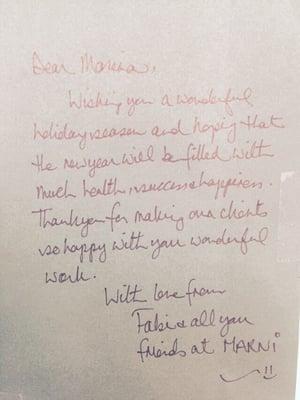 Dear Marina,
Wishing you a wonderful
holiday season and hoping that
the new year will be filled with
much health, success & happiness.
Thank you for making our clients
so happy with your wonderful
work.
With love from
Fabi & all your
friends at MARNI